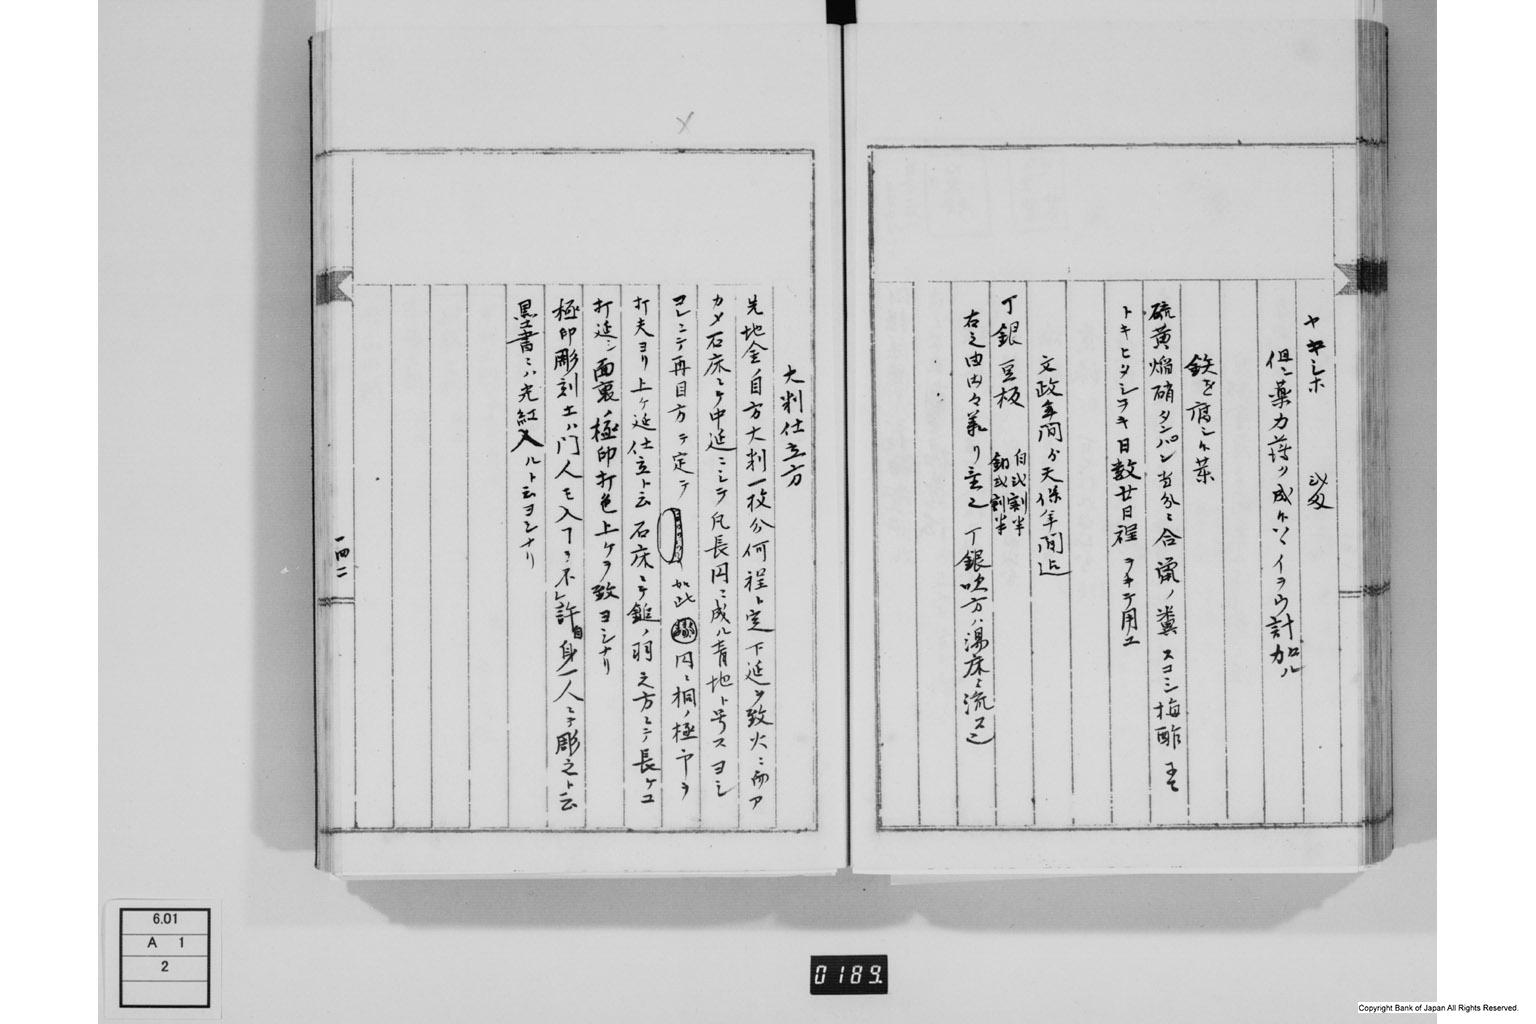 ヤキシホ
但シ薬力薄ク成候ハヽイヲウ計加ル
鉄を腐シ候薬
硫黄焔硝タンパン当分ニ合 糞スコシ梅酢
トキヒタシヲキ日数廿日程ヲキテ用ユ
文政年間より天保年間迄
丁銀 豆板
白弐割半
右之由
丁銀吹方ハ湯床ニ流ス
大判仕立方
先地金ノ目方大判一枚分何程ト定下延ヲ致火ニ而ア
カメ石床ニテ中延ニシテ凡長円ニ成ル青地ト号スヨシ
ヨレニテ再目方ヲ定テ
如此
円ニ桐ノ極印ヲ
打夫ヨリ上ケ延仕立ト云石床ニテ鎚ノ羽之方ニテ長ケエ
打延シ面裏ノ極印打色上ケヲ致ヨシナリ
極印彫刻エハ門人モ入ヿヲ不レ許自身一人ニテ彫之ト云
墨書ニハ光紅入ルト云ヨシナリ
一四二
6.01
A 1
2
0189.
Copyright Bank of Japan All Rights Reserved.